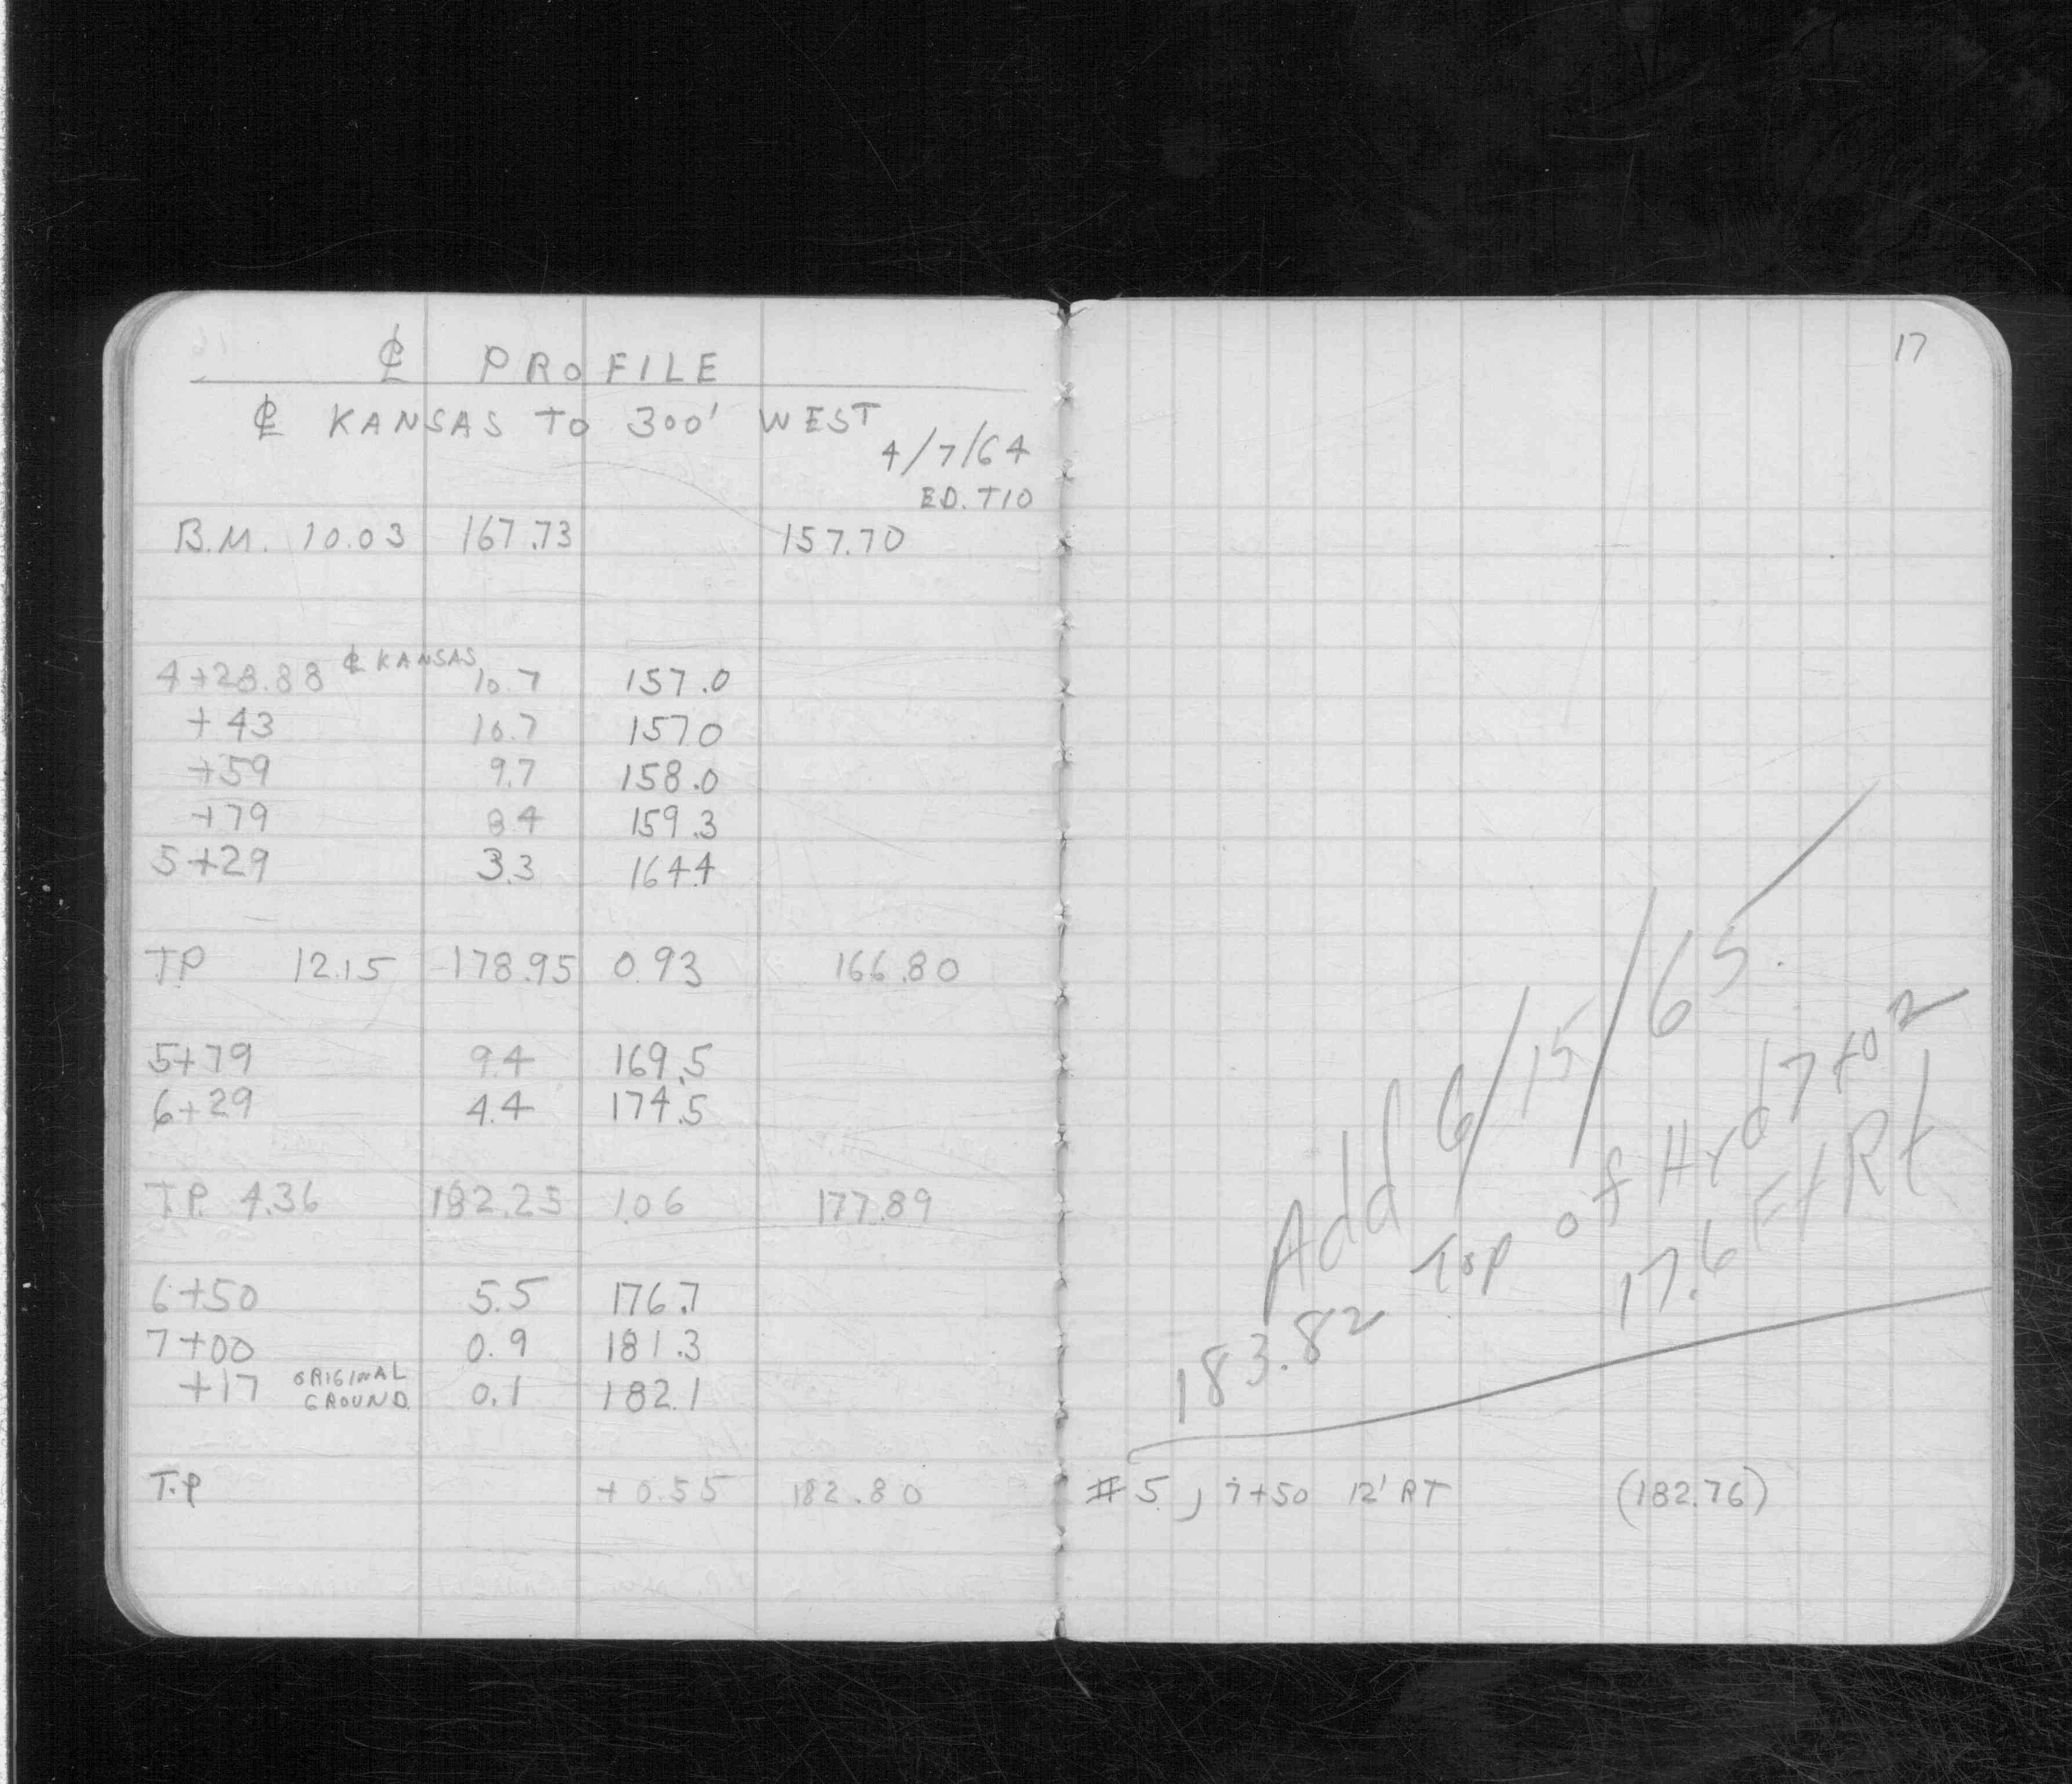 ℄ PROFILE
℄ KANSAS TO 300' WEST
4/7/64
ED. T10
B.M. 10.03 167.73 157.70
4+28.88 ℄ KANSAS 10.7 157.0
+43 10.7 157.0
+59 9.7 158.0
+79 8.4 159.3
5+29 3.3 164.4
T.P. 12.15 178.95 0.93 166.80
5+79 9.4 169.5
6+29 4.4 174.5
T.P. 4.36 182.25 1.06 177.89
6+50 5.5 176.7
7+00 0.9 181.3
+17 ORIGINAL GROUND 0.1 182.1
T.P +0.55 182.80
17
Add 6/15/65.
183.82 Top of Hyd 7+02
17.6 Ft Rt
#5, 7+50 12' RT (182.76)